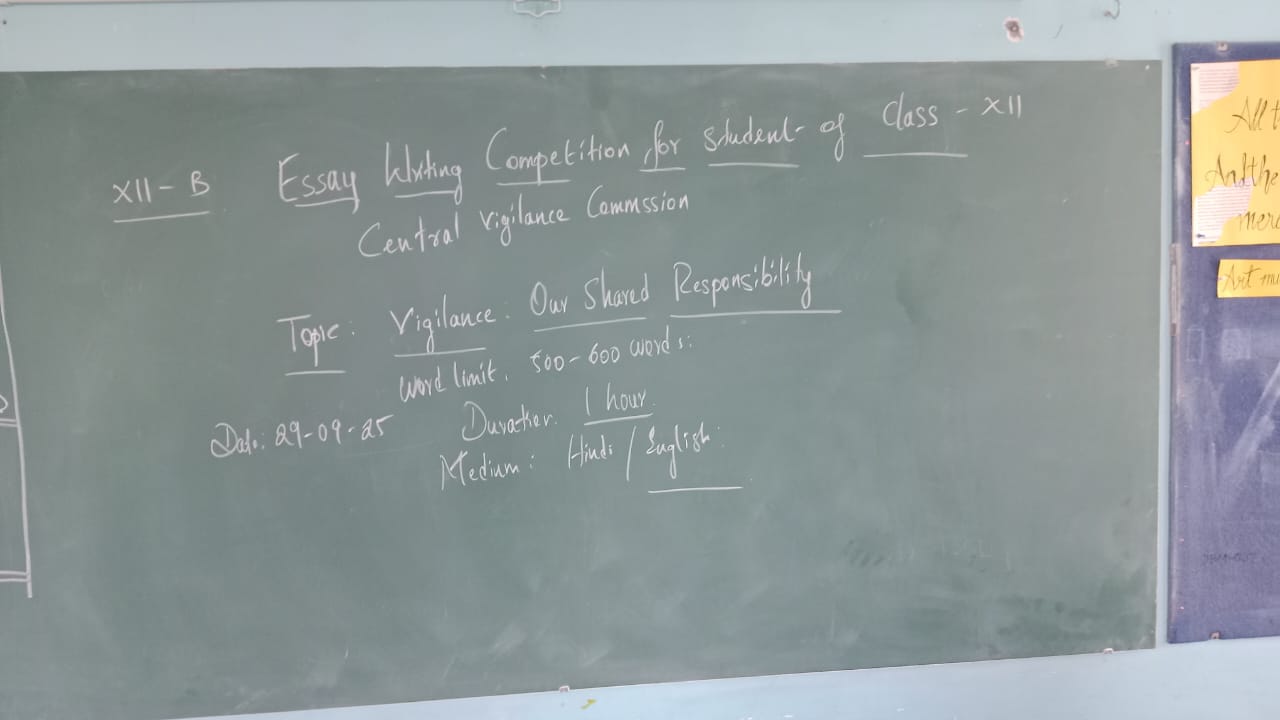 XII - B Essay Writing Competition for student of Class - XII
Central Vigilance Commssion
Topic: Vigilance: Our Shared Responsibility
word limit. 500-600 words:
Date: 29-09-25
Duration. 1 hour.
Medium: Hindi / English:
All
And the
merc
Art mu